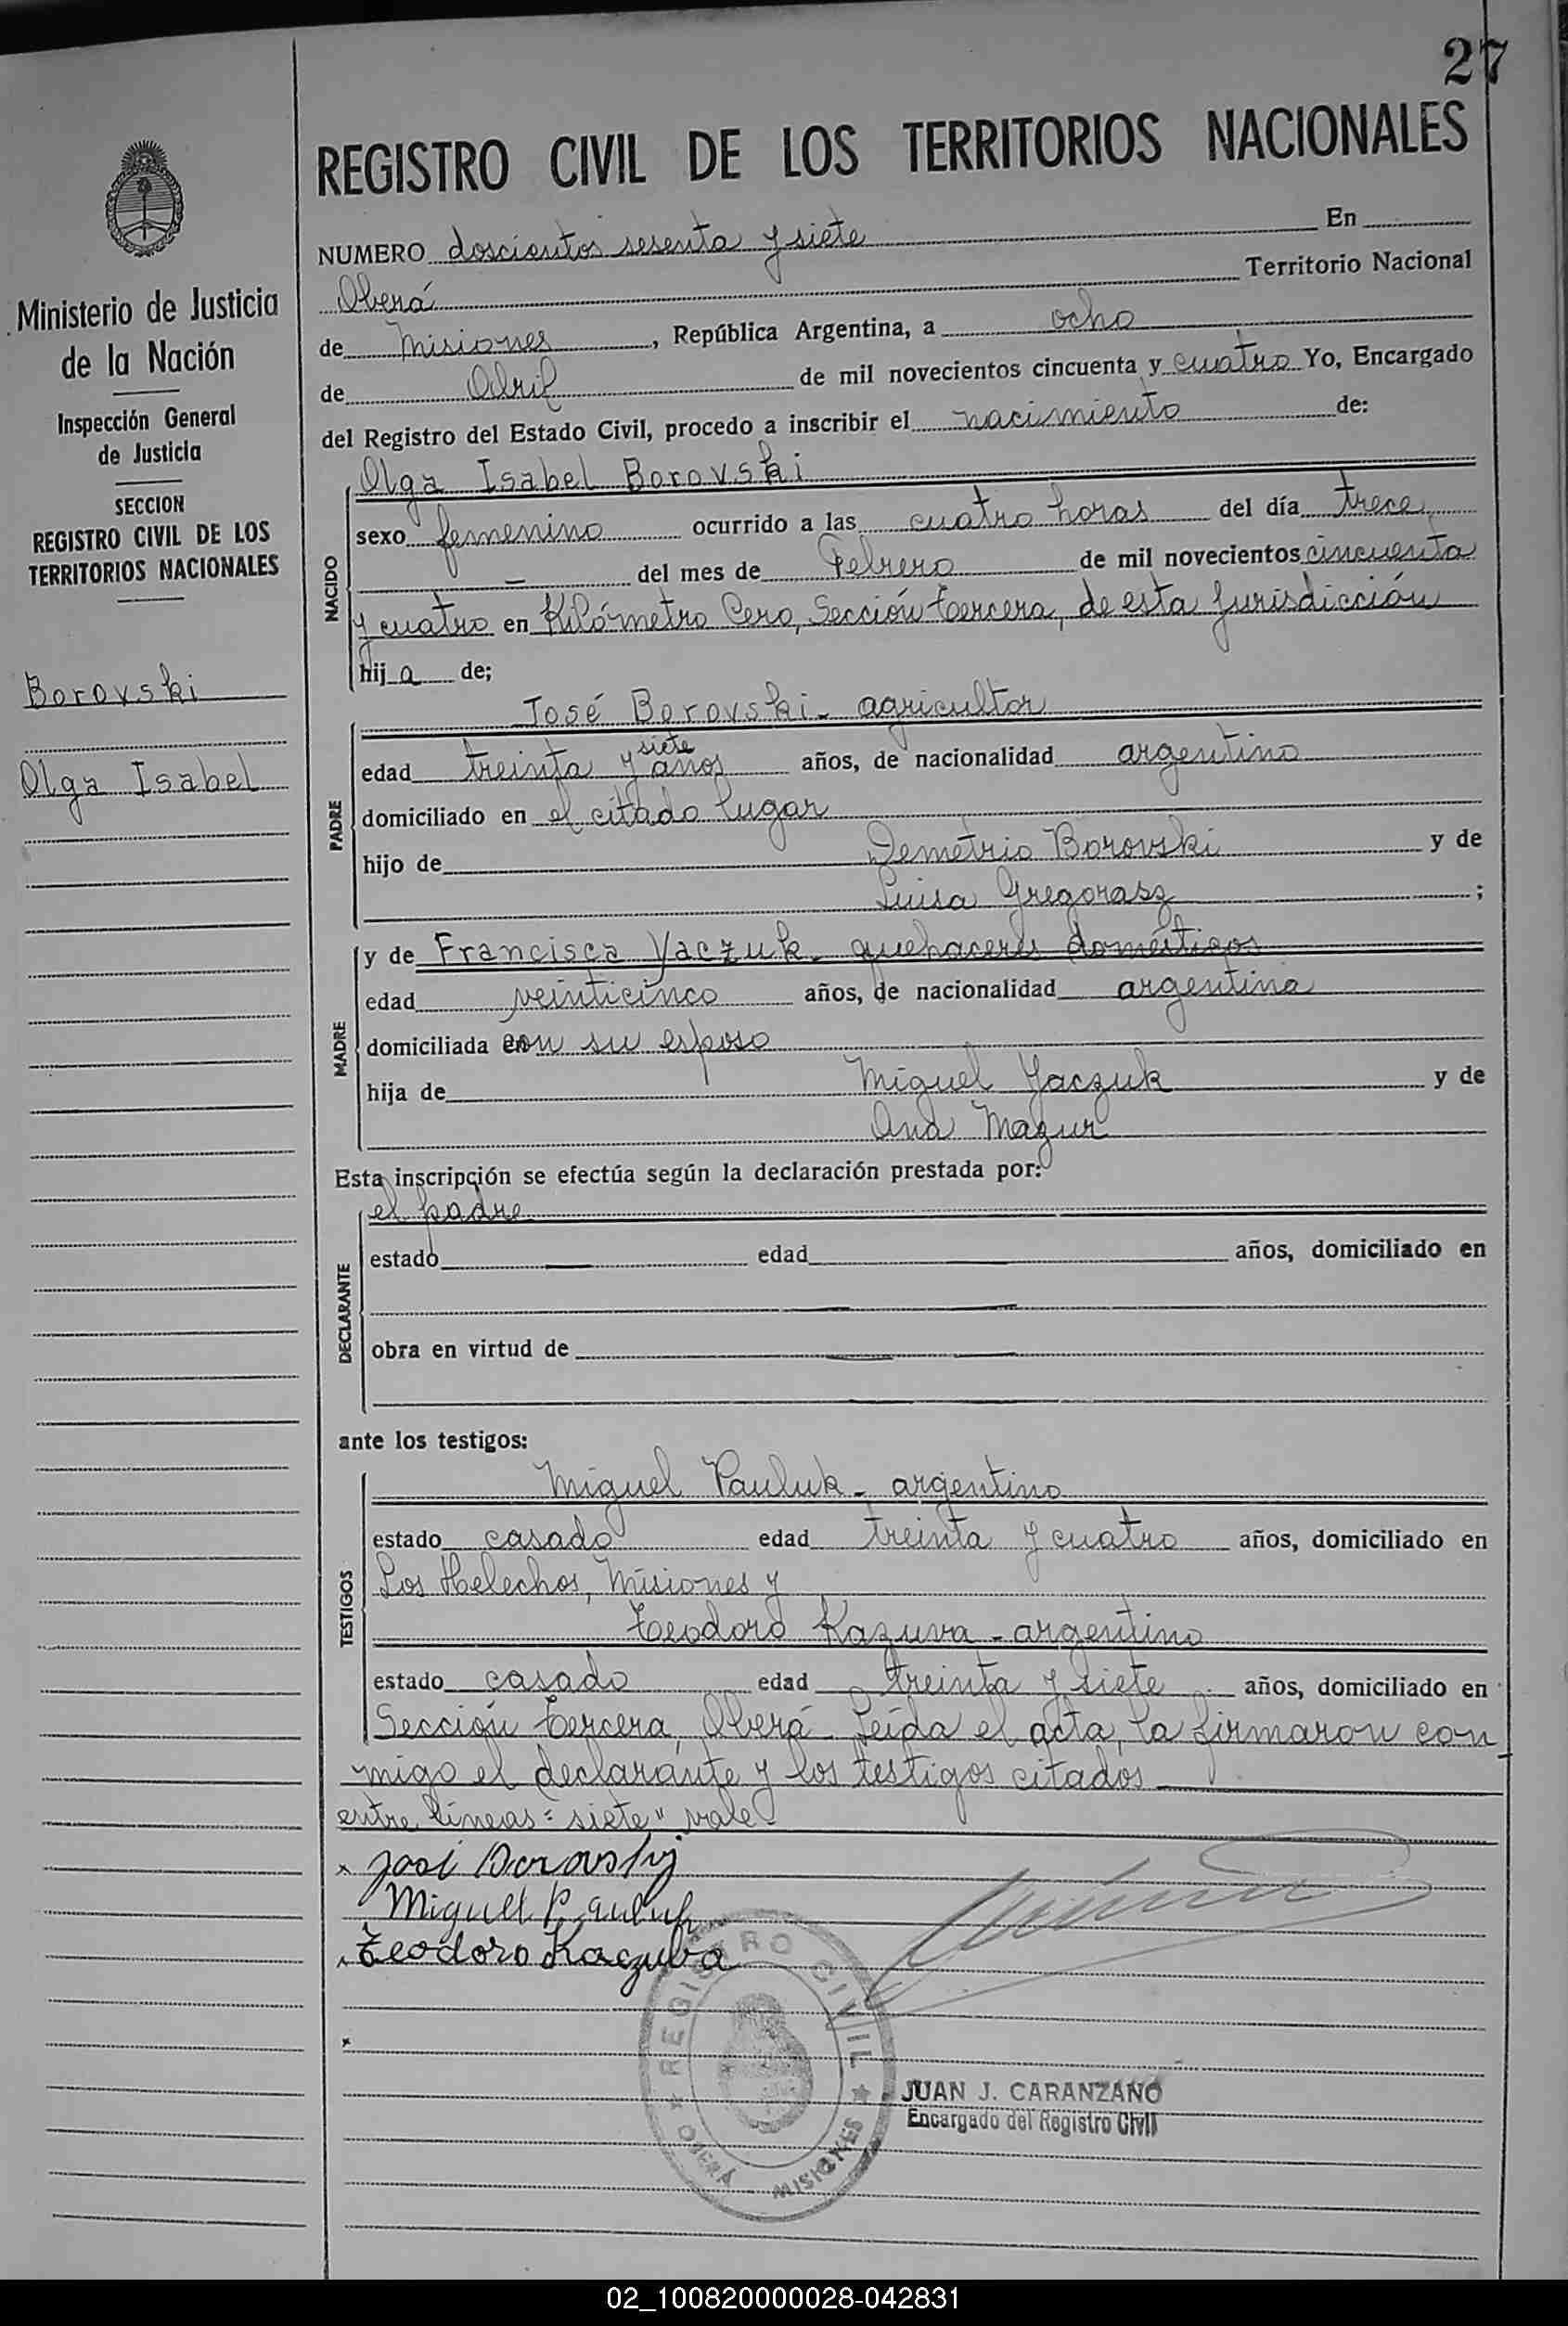 27
REGISTRO CIVIL DE LOS TERRITORIOS NACIONALES
NUMERO doscientos sesenta y siete En
Oberá Territorio Nacional
de Misiones, República Argentina, a ocho
de Abril de mil novecientos cincuenta y cuatro Yo, Encargado
del Registro del Estado Civil, procedo a inscribir el nacimiento de:
Ministerio de Justicia
de la Nación
Inspección General
de Justicia
SECCION
REGISTRO CIVIL DE LOS
TERRITORIOS NACIONALES
Borovski
Olga Isabel
NACIDO
Olga Isabel Borovski
sexo femenino ocurrido a las cuatro horas del día trece
— del mes de Febrero de mil novecientos cincuenta
y cuatro en Kilómetro Cero, Sección tercera, de esta jurisdicción
hija de;
PADRE
José Borovski - agricultor
siete
edad treinta y años años, de nacionalidad argentino
domiciliado en el citado lugar
hijo de Demetrio Borovski y de
Luisa Gregorasz ;
MADRE
y de Francisca Yaczuk - quehaceres domésticos
edad veinticinco años, de nacionalidad argentina
domiciliada con su esposo
hija de Miguel Yaczuk y de
Ana Mazur
Esta inscripción se efectúa según la declaración prestada por:
DECLARANTE
el padre
estado — edad años, domiciliado en
obra en virtud de
ante los testigos:
TESTIGOS
Miguel Pauluk - argentino
estado casado edad treinta y cuatro años, domiciliado en
Los Helechos, Misiones y
Teodoro Kazuva - argentino
estado casado edad treinta y siete años, domiciliado en
Sección tercera, Oberá - Leída el acta, la firmaron con
migo el declarante y los testigos citados
entre líneas = siete" vale
x José Borovskij
Miguel Pauluk
x Teodoro Kaczuba
x
REGISTRO CIVIL
OBERÁ MISIONES
JUAN J. CARANZANO
Encargado del Registro Civil
02_100820000028-042831